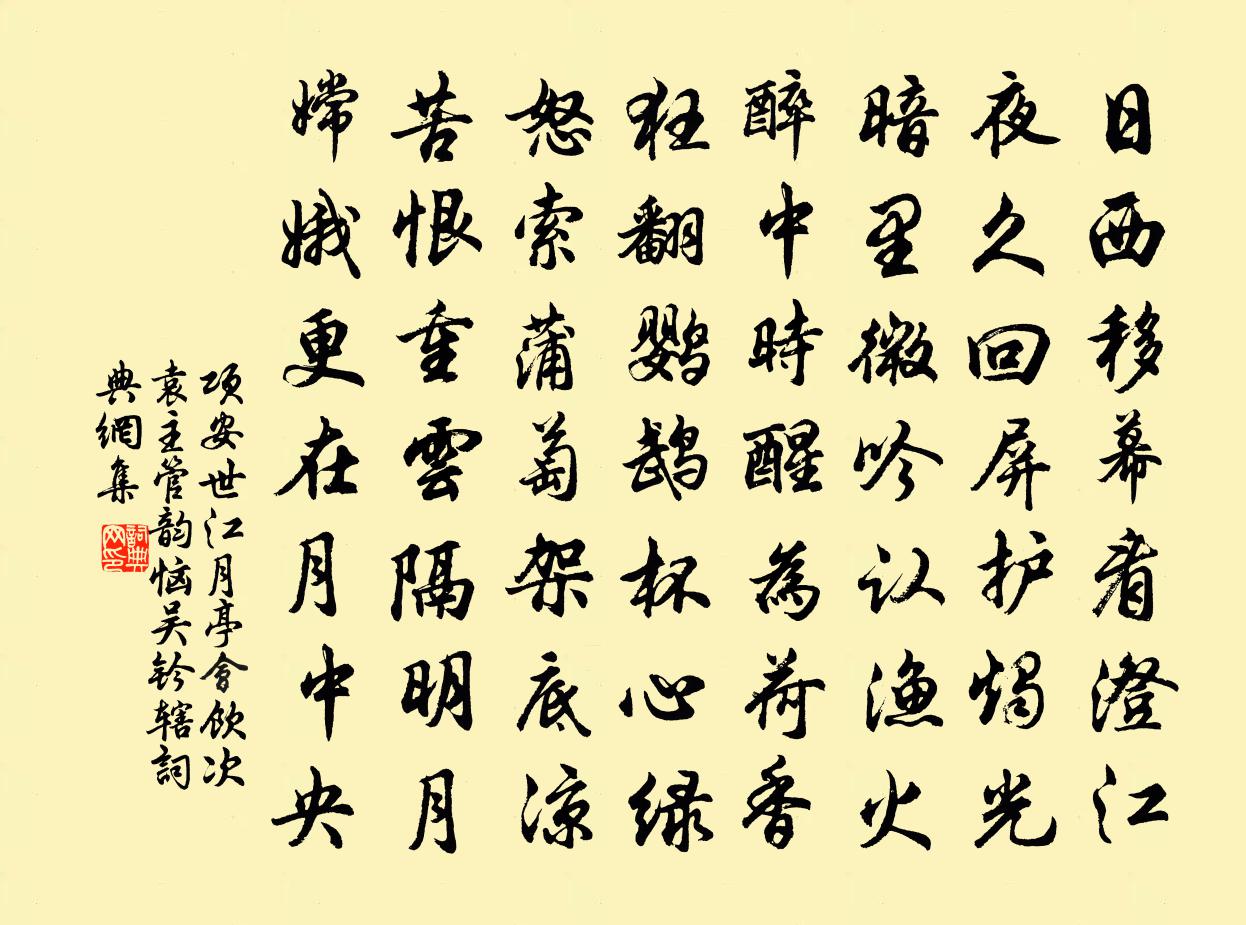 日西移幕看澄江
夜久回屏护烛光
暗里微吟认渔火
醉中時醒為荷香
狂翻鹦鹉杯心绿
怒索蒲萄架底凉
苦恨重雲隔明月
嫦娥更在月中央
项安世江月亭會飲次
袁主管韵恼吴钤辖詞
典網集
詞典
网印